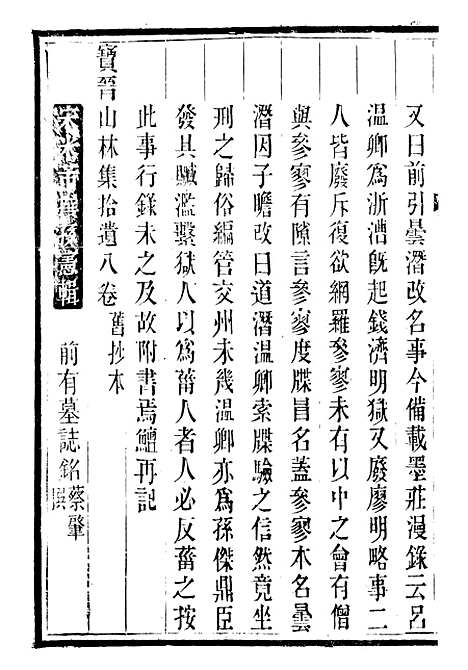 又曰前引曇潛改名事今備載墨莊漫錄云呂
溫卿爲浙漕旣起錢濟明獄又廢廖明略事二
人皆廢斥復欲網羅參寥未有以中之會有僧
與參寥有隙言參寥度牒冒名蓋參寥本名曇
潛因子瞻改曰道潛溫卿索牒驗之信然竟坐
刑之歸俗編管兖州未幾溫卿亦爲孫傑鼎臣
發其贓濫繫獄人以爲菑人者人必反菑之按
此事行錄未之及故附書焉鱣再記
寶晉山林集拾遺八卷 舊抄本
輯 前有墓誌銘蔡肇
撰